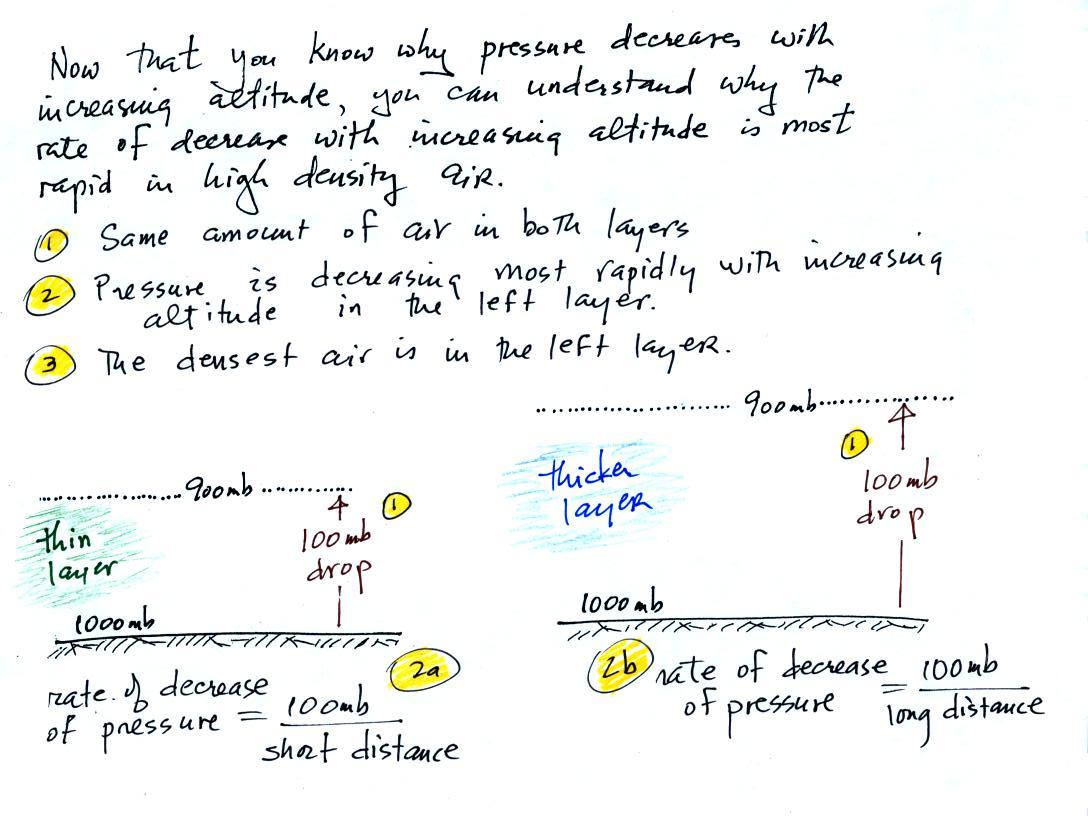 Now that you know why pressure decreases with
increasing altitude, you can understand why the
rate of decrease with increasing altitude is most
rapid in high density air.
1 Same amount of air in both layers
2 Pressure is decreasing most rapidly with increasing
altitude in the left layer.
3 The densest air is in the left layer.
900mb
1
100mb
drop
thin
layer
1000mb
2a
rate of decrease
of pressure = 100mb
short distance
900mb
1
thicker
layer
100mb
drop
1000mb
2b rate of decrease
of pressure = 100mb
long distance